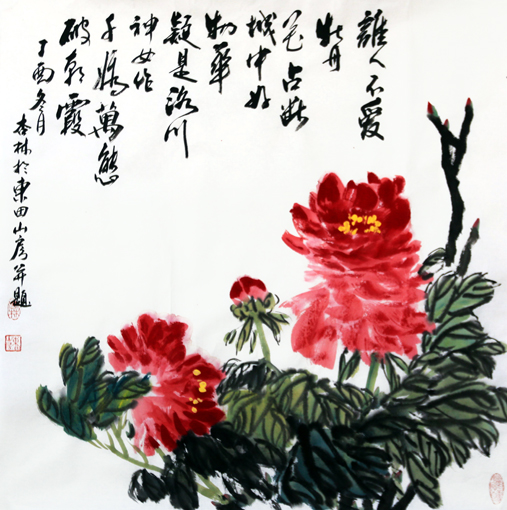 誰人不愛
牡丹
花占断
城中好
物華
疑是洛川
神女作
千嬌萬態
破朝霞
丁酉冬月
杏林於東田山房并題